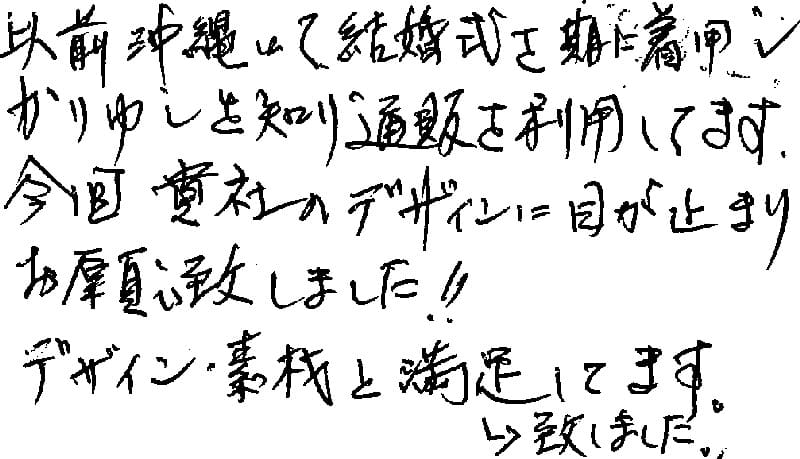 以前沖縄にて結婚式を期に着用し
かりゆしを知り通販を利用してます.
今回貴社のデザインに目が止まり
お願い致しました!!
デザイン・素材と満足してます。
↳致しました。